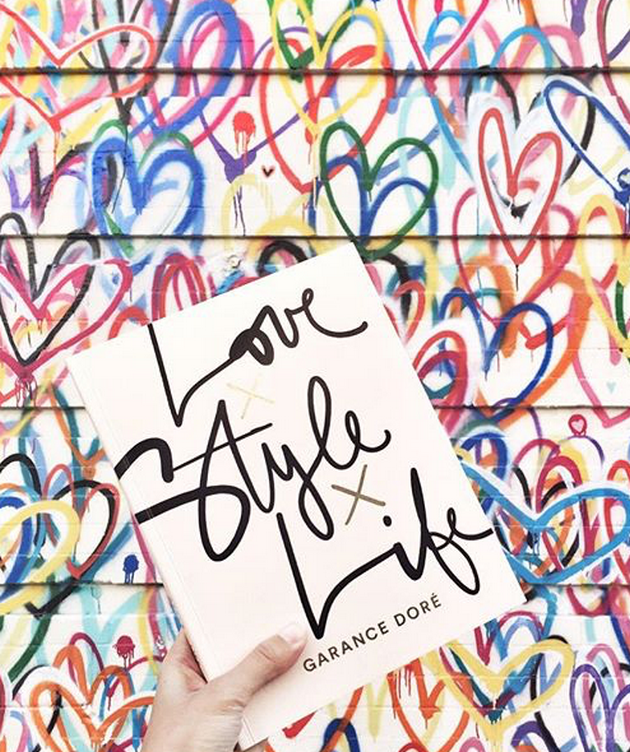 Love
x
Style
x
Life
GARANCE DORÉ